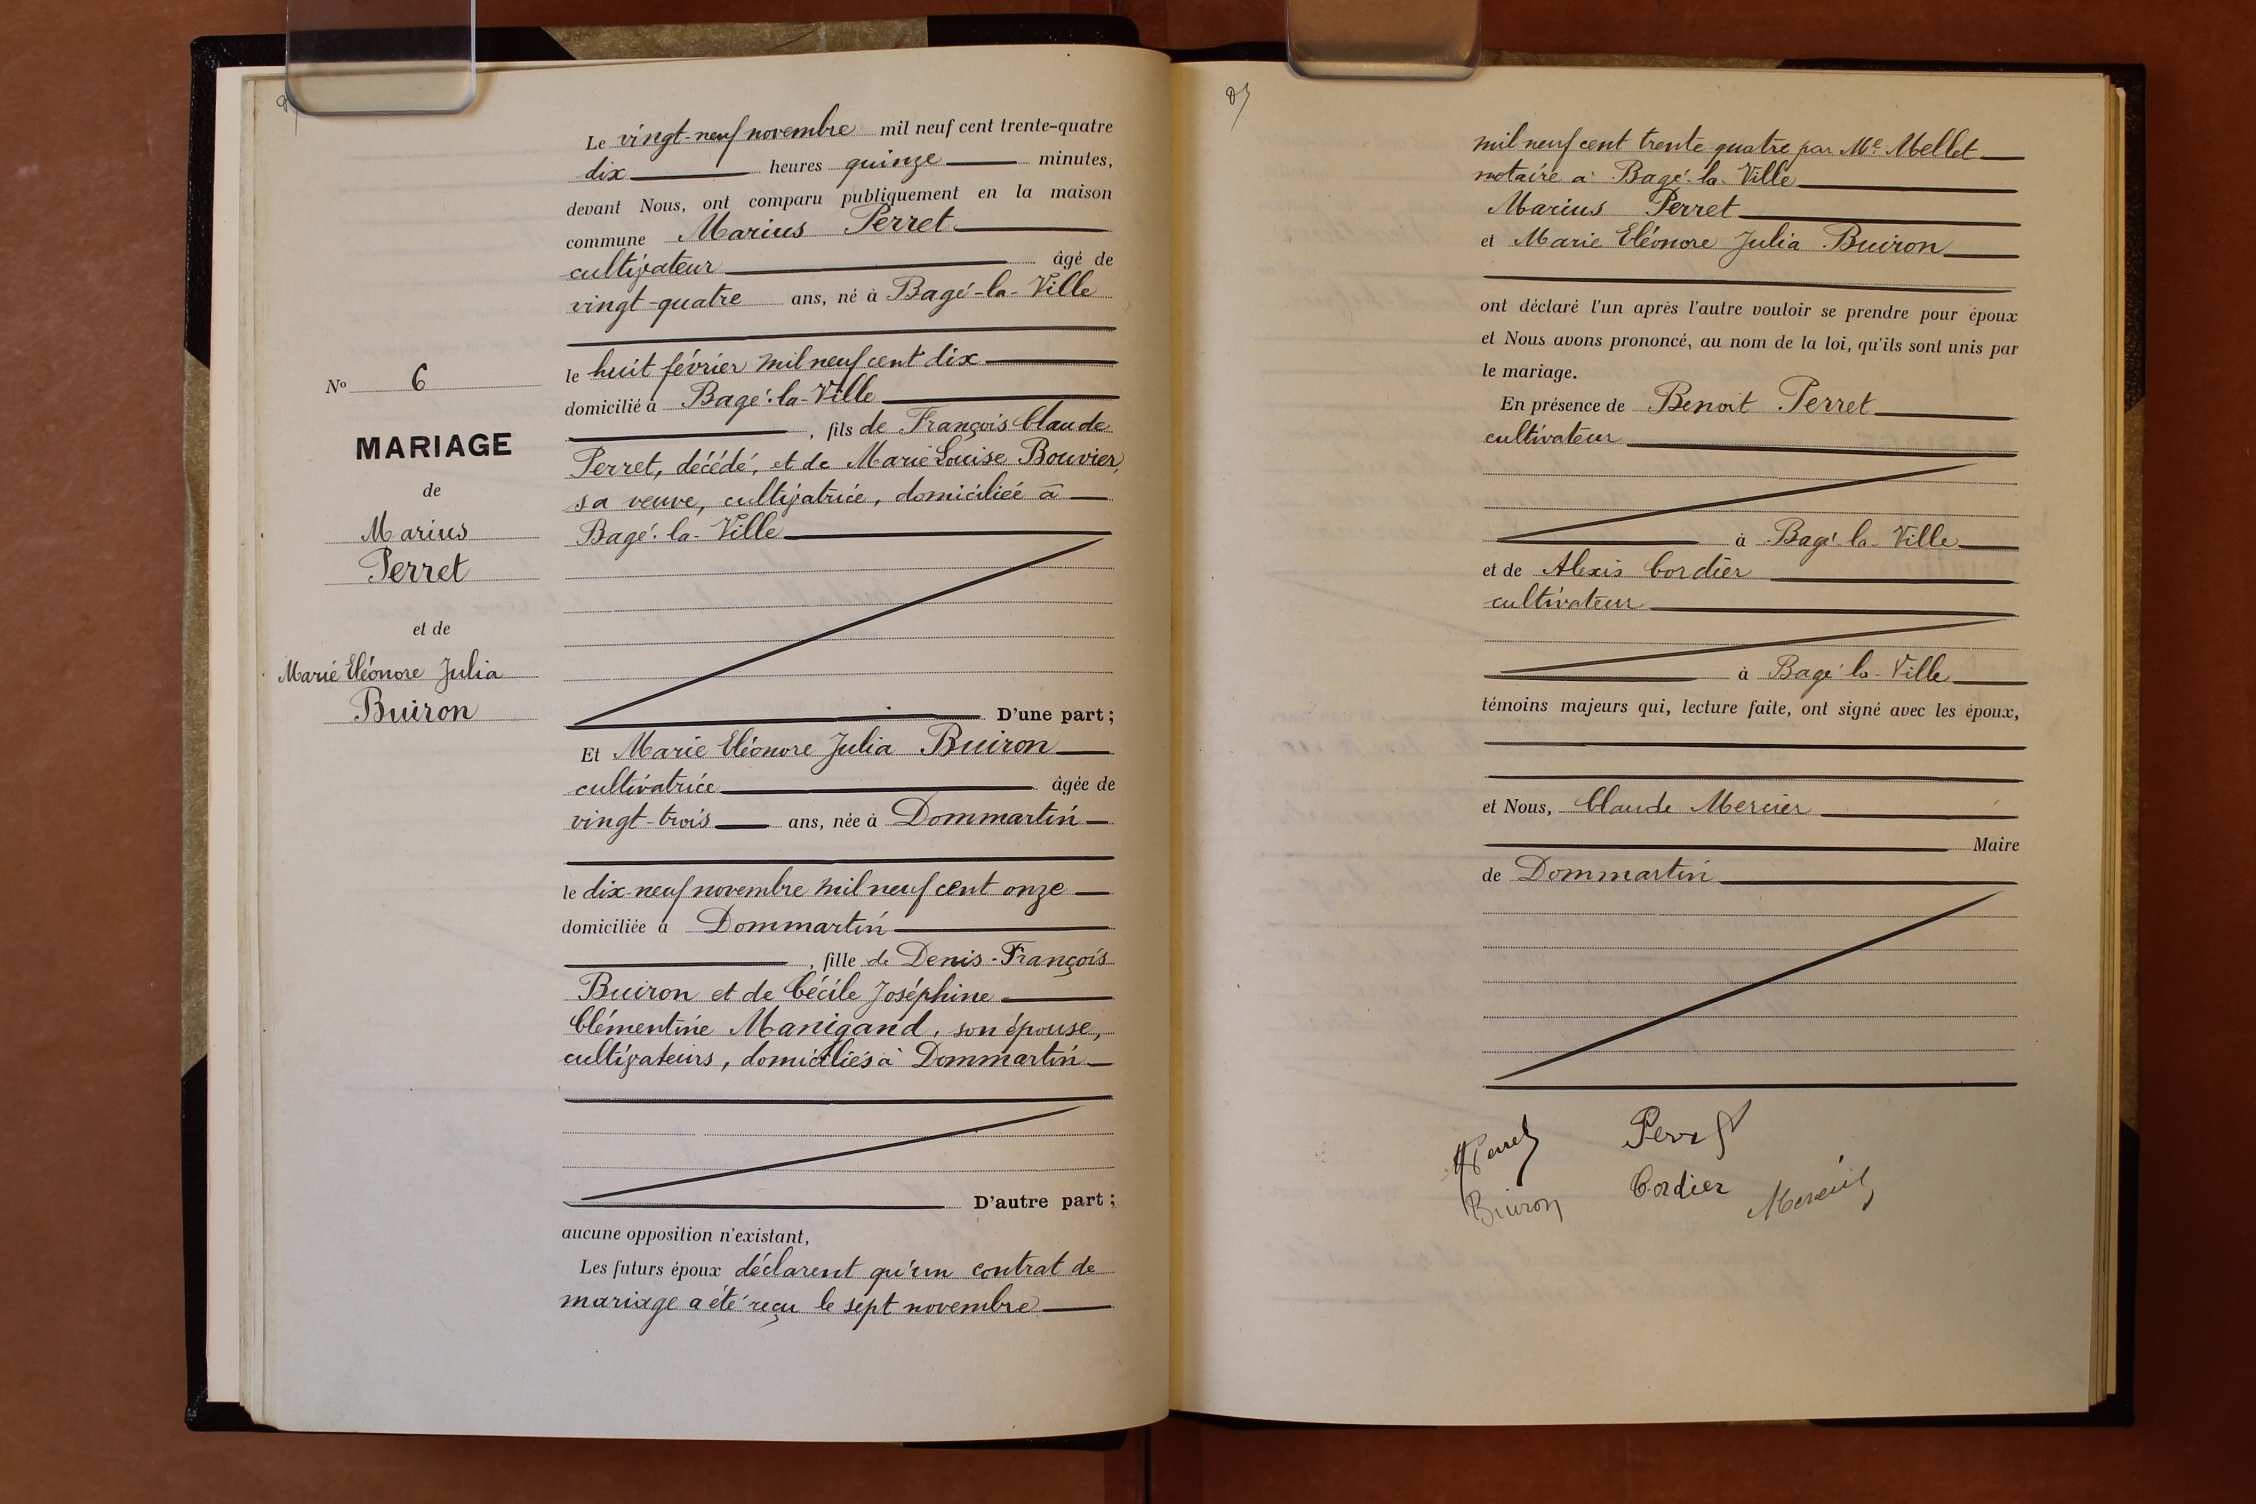 Le vingt-neuf novembre mil neuf cent trente-quatre
dix heures quinze minutes,
devant Nous, ont comparu publiquement en la maison
commune Marius Perret
cultivateur âgé de
vingt-quatre ans, né à Bagé-la-Ville
le huit février mil neuf cent dix
domicilié à Bagé-la-Ville
, fils de François Claude
Perret, décédé, et de Marie Louise Bouvier,
sa veuve, cultivatrice, domiciliée à
Bagé-la-Ville
D'une part;
Nº 6
MARIAGE
de
Marius
Perret
et de
Marie Eléonore Julia
Buiron
Et Marie Eléonore Julia Buiron
cultivatrice âgée de
vingt-trois ans, née à Dommartin
le dix-neuf novembre mil neuf cent onze
domiciliée à Dommartin
, fille de Denis-François
Buiron et de Cécile Joséphine
Clémentine Manigand, son épouse,
cultivateurs, domiciliés à Dommartin
D'autre part;
aucune opposition n'existant,
Les futurs époux déclarent qu'un contrat de
mariage a été reçu le sept novembre
mil neuf cent trente-quatre par Me Mellet
notaire à Bagé-la-Ville
Marius Perret
et Marie Eléonore Julia Buiron
ont déclaré l'un après l'autre vouloir se prendre pour époux
et Nous avons prononcé, au nom de la loi, qu'ils sont unis par
le mariage.
En présence de Benoit Perret
cultivateur
à Bagé-la-Ville
et de Alexis Cordier
cultivateur
à Bagé-la-Ville
témoins majeurs qui, lecture faite, ont signé avec les époux,
et Nous, Claude Mercier
Maire
de Dommartin
Perret
Perret
Buiron
Cordier
Mercier